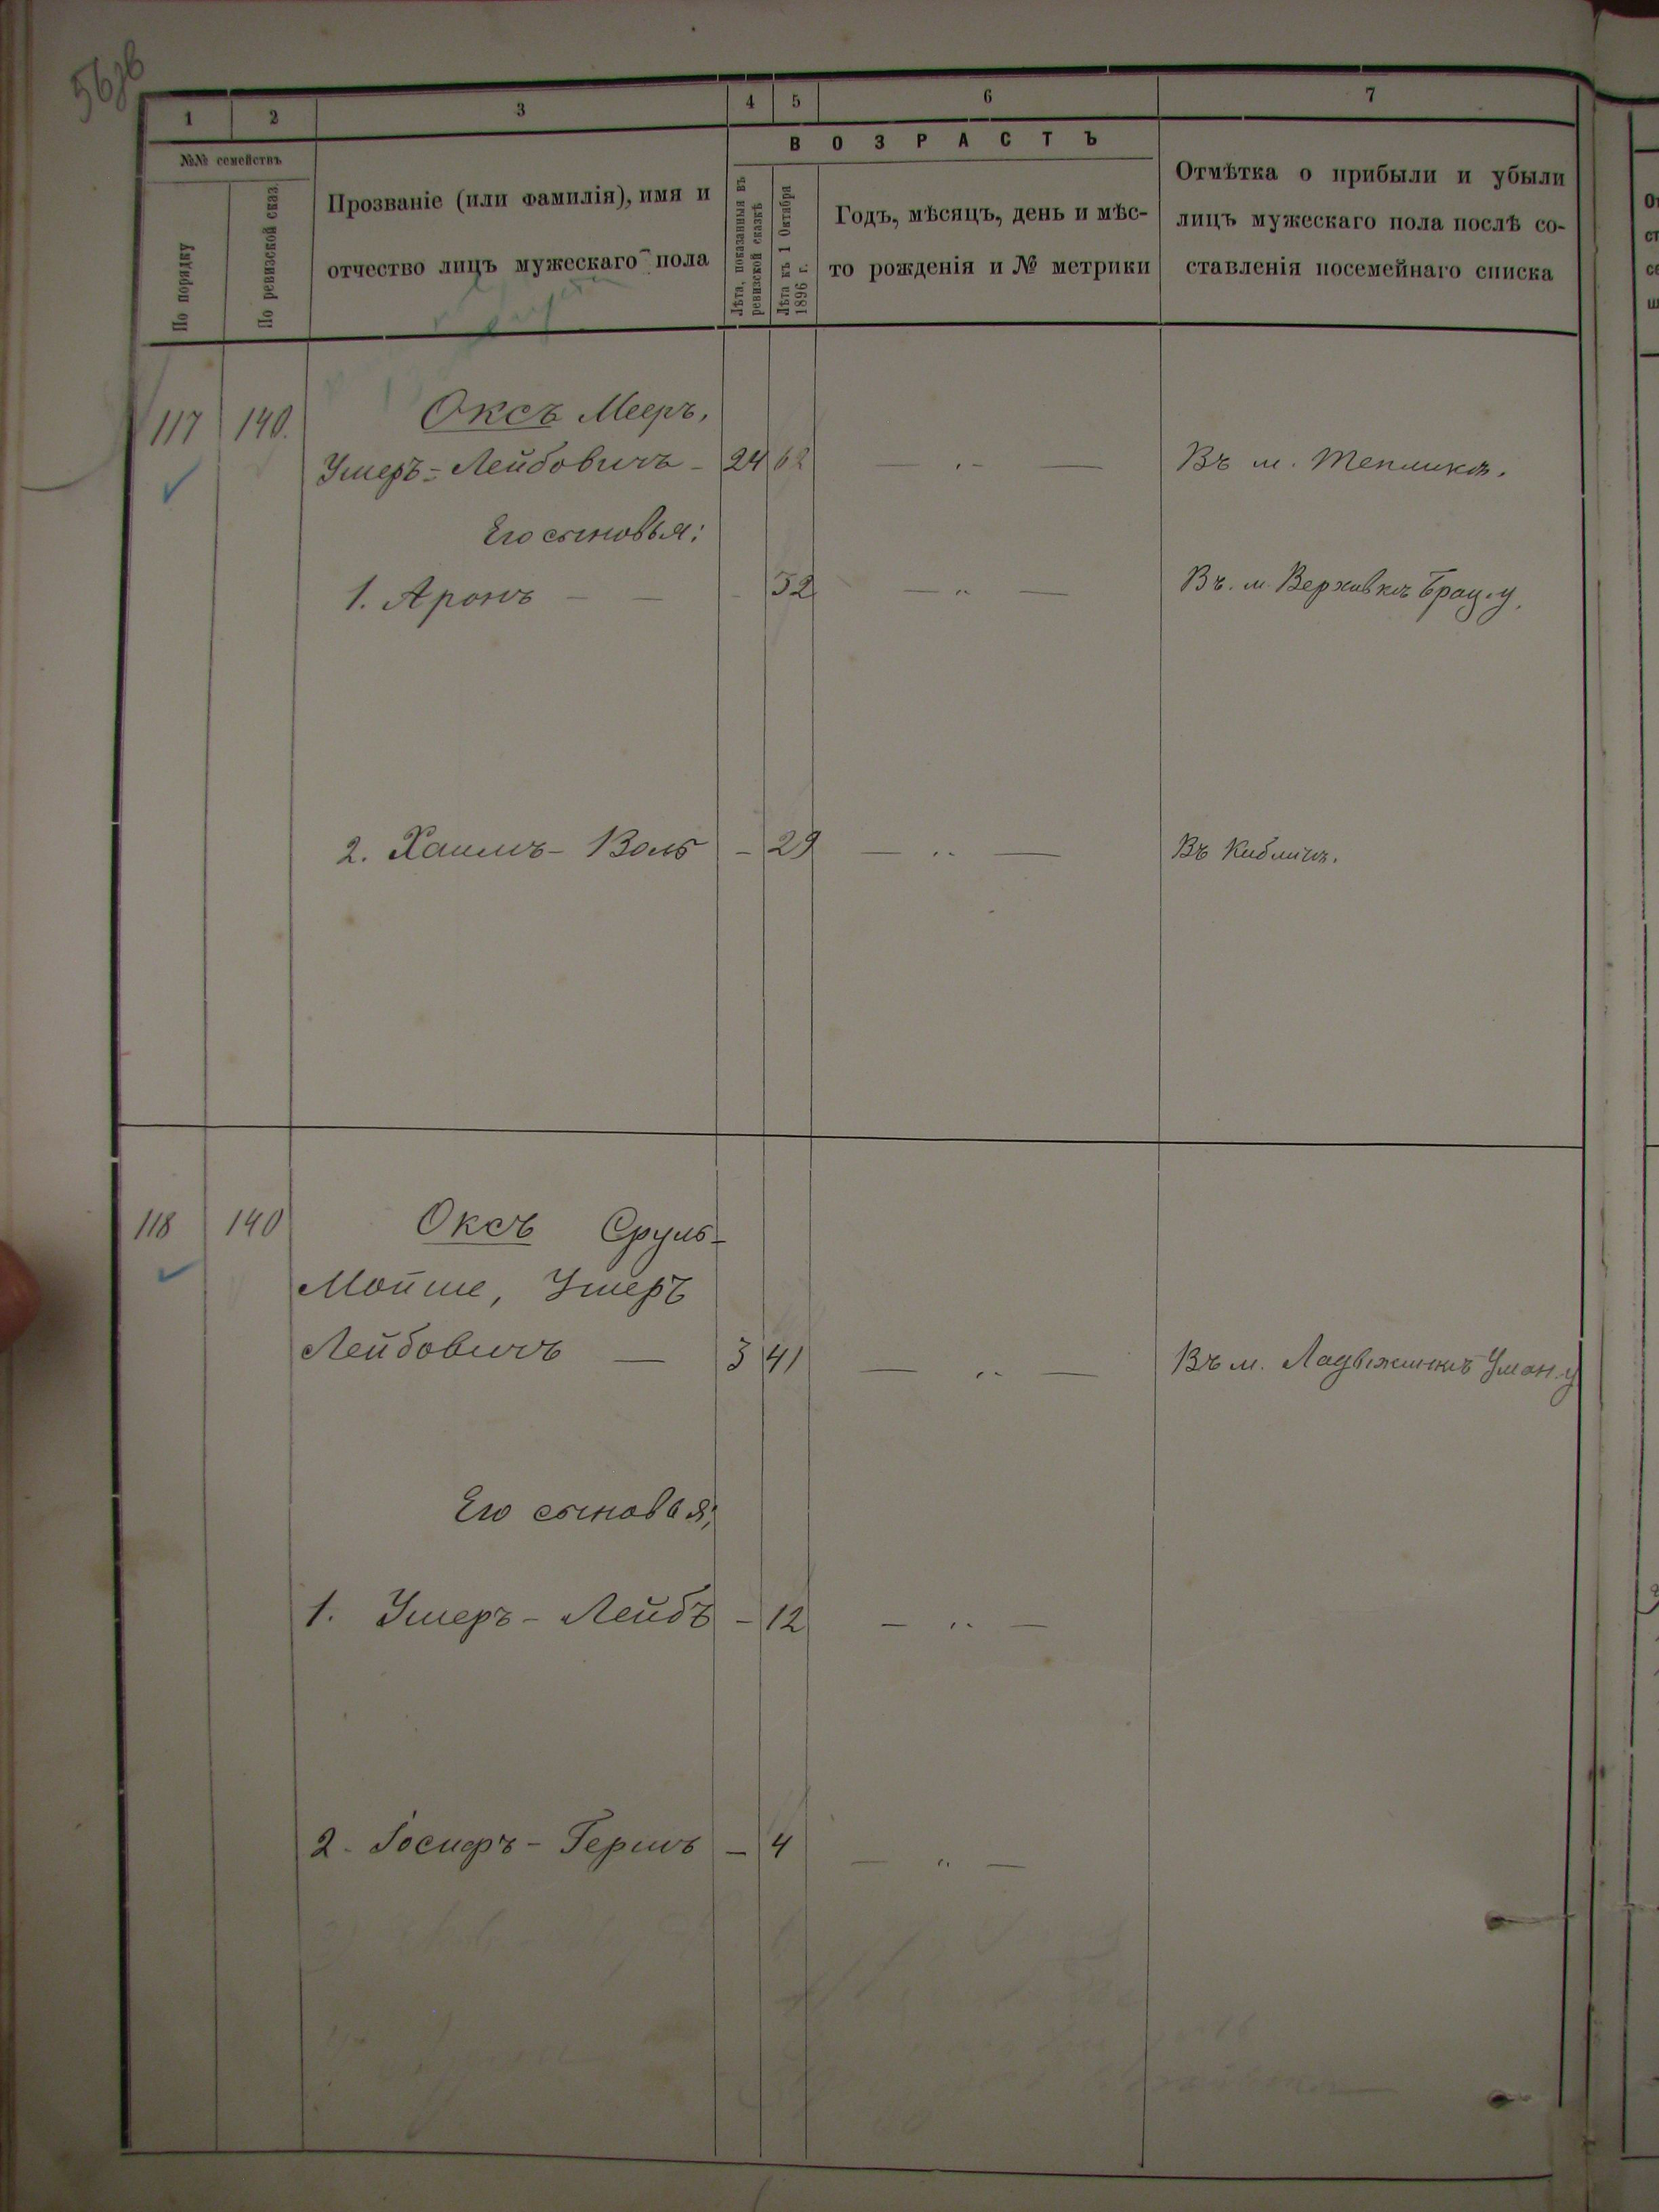 1 2 3 4 5 6 7
№№ семействъ
По порядку
По ревизской сказ.
Прозваніе (или фамилія), имя и
отчество лицъ мужескаго пола
ВОЗРАСТЪ
Лѣта, показанныя въ
ревизской сказкѣ
Лѣта къ 1 Октября
1896 г.
Годъ, мѣсяцъ, день и мѣс-
то рожденія и № метрики
Отмѣтка о прибыли и убыли
лицъ мужескаго пола послѣ со-
ставленія посемейнаго списка
117 140. Оксъ Мееръ,
Ушеръ-Лейбовичъ - 24 62 — „ — Въ м. Тепликѣ.
Его сыновья:
1. Аронъ — — - 52 — „ — Въ. м. Верховкѣ Брац. у.
2. Хаимъ-Воль - 29 — „ — Въ Кибличѣ.
118 140 Оксъ Сруль-
Мойше, Ушеръ
Лейбовичъ — 3 41 — „ — Въ м. Ладыжинкѣ Уман. у
Его сыновья:
1. Ушеръ-Лейбъ - 12 — „ —
2. Іосифъ-Гершъ - 4 — „ —